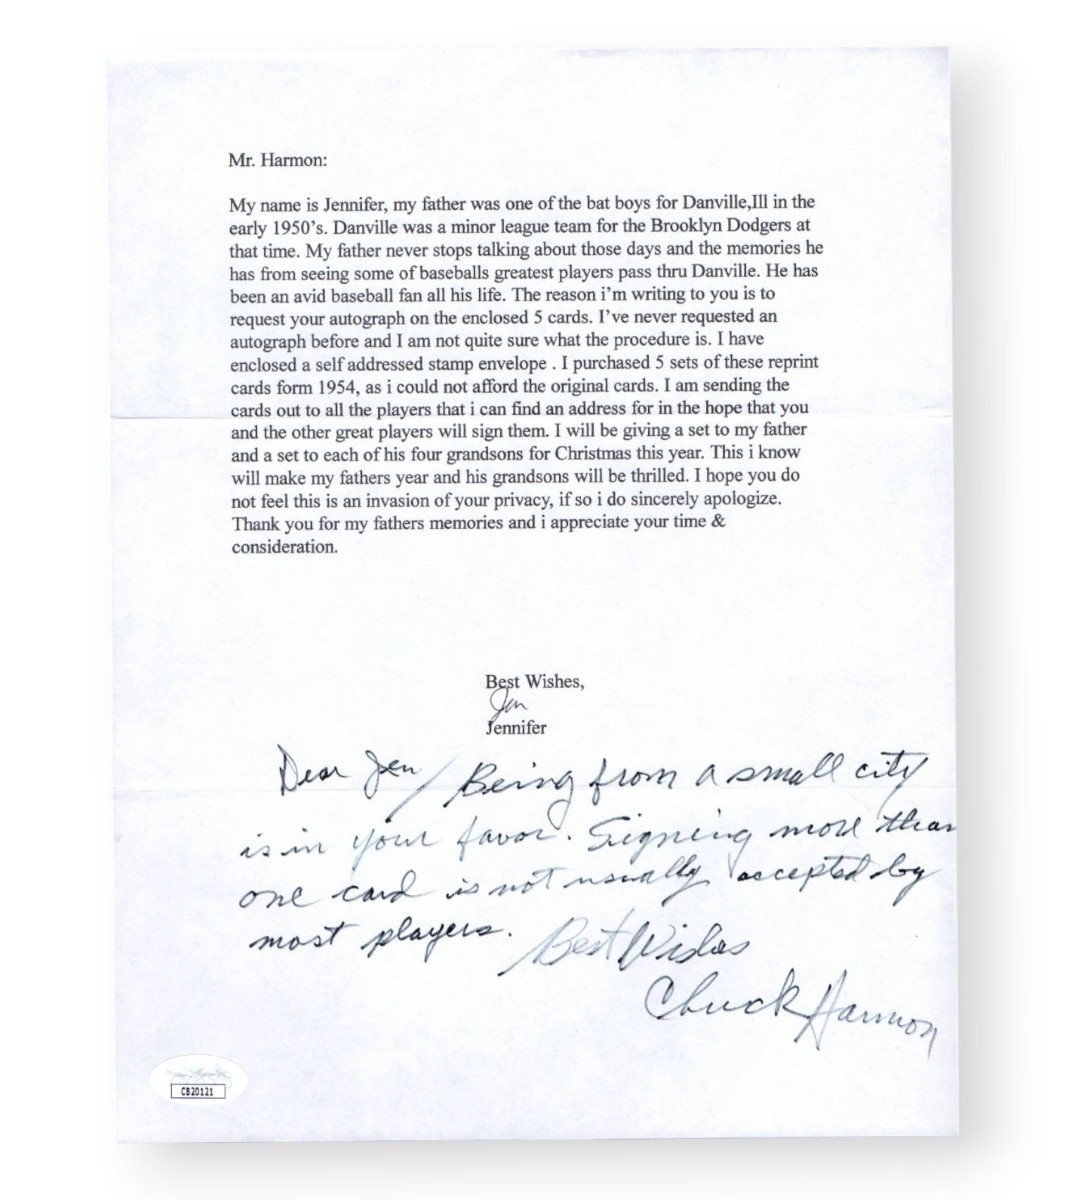 Mr. Harmon:
My name is Jennifer, my father was one of the bat boys for Danville,Ill in the
early 1950's. Danville was a minor league team for the Brooklyn Dodgers at
that time. My father never stops talking about those days and the memories he
has from seeing some of baseballs greatest players pass thru Danville. He has
been an avid baseball fan all his life. The reason i'm writing to you is to
request your autograph on the enclosed 5 cards. I've never requested an
autograph before and I am not quite sure what the procedure is. I have
enclosed a self addressed stamp envelope . I purchased 5 sets of these reprint
cards form 1954, as i could not afford the original cards. I am sending the
cards out to all the players that i can find an address for in the hope that you
and the other great players will sign them. I will be giving a set to my father
and a set to each of his four grandsons for Christmas this year. This i know
will make my fathers year and his grandsons will be thrilled. I hope you do
not feel this is an invasion of your privacy, if so i do sincerely apologize.
Thank you for my fathers memories and i appreciate your time &
consideration.
Best Wishes,
Jen
Jennifer
Dear Jen / Being from a small city
is in your favor. Signing more than
one card is not usually accepted by
most players. Best Wishes
Chuck Harmon
CB20121